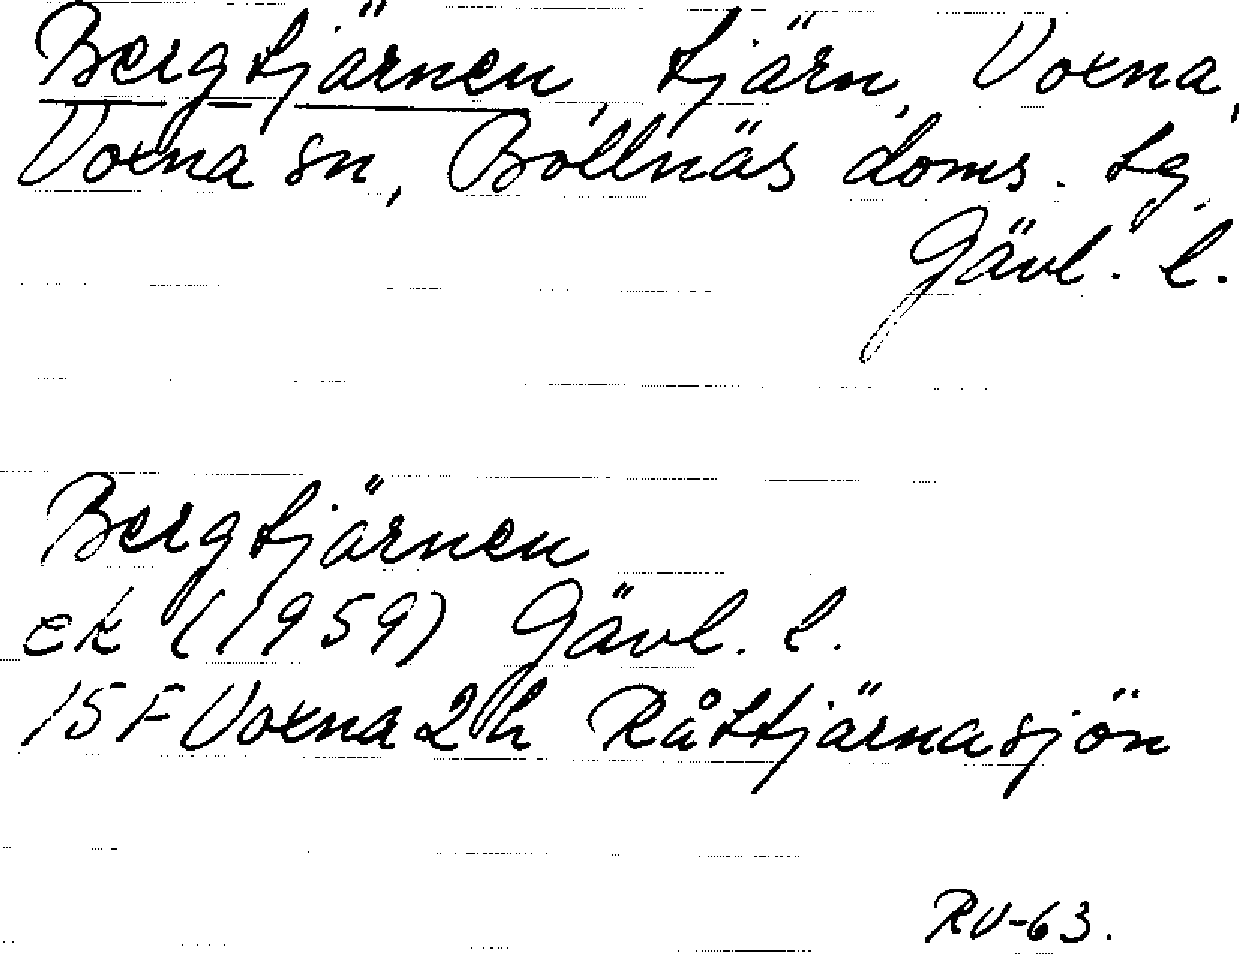 Bergtjärnen, tjärn, Voxna,
Voxna sn, Bollnäs doms. tg,
Gävl. l.
Bergtjärnen
ek (1959) Gävl. l.
15 F Voxna 2 h Råttjärnasjön
RV-63.